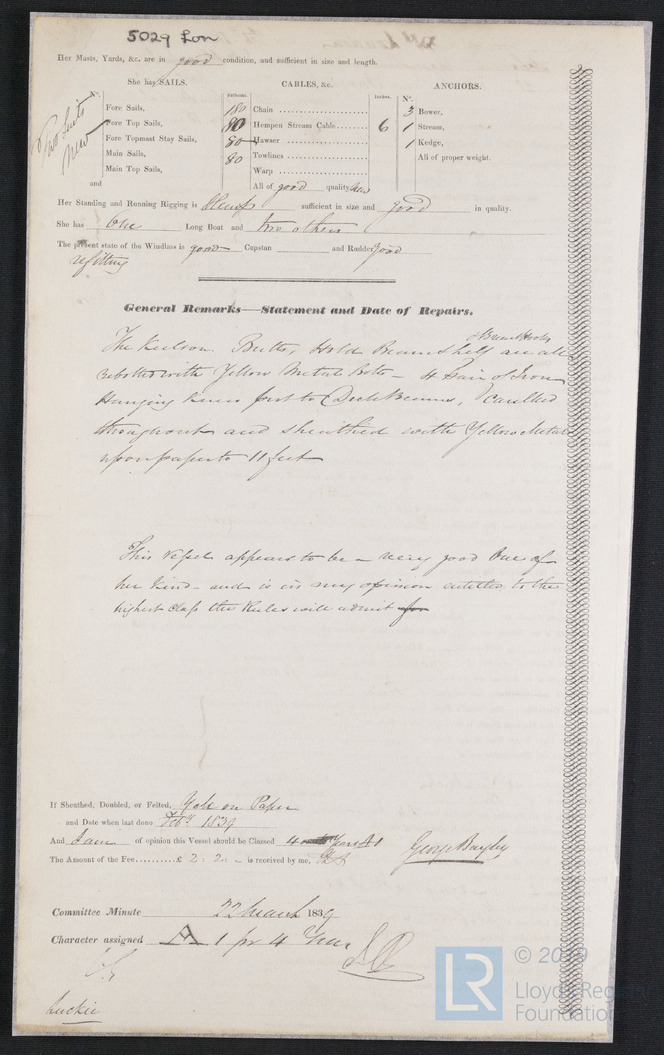 5029 Lon
Her Masts, Yards, &c. are in good condition, and sufficient in size and length.
She has SAILS.
CABLES, &c.
ANCHORS.
N°.
Fathoms.
Inches.
N°.
Two Suits
New
Fore Sails,
Fore Top Sails,
Fore Topmast Stay Sails,
Main Sails,
Main Top Sails,
and
180 Chain
80 Hempen Stream Cable 6
80 Hawser
80 Towlines
Warp
All of good quality New
3 Bower,
1 Stream,
1 Kedge,
All of proper weight.
Her Standing and Running Rigging is Hemp sufficient in size and good in quality.
She has One Long Boat and two others
The present state of the Windlass is good Capstan and Rudder good
refitting
General Remarks—Statement and Date of Repairs.
& Breast Hooks
The Keelson Butts, Hold Beams Shelf are all
bolted with Yellow Metal Bolts - 4 Pair of Iron
Hanging Knees put to Deck Beams, Caulked
throughout and sheathed with Yellow Metal
upon paper to 11 feet
This Vessel appears to be a very good One of
her kind - and is in my opinion entitled to the
highest class the Rules will admit for
If Sheathed, Doubled, or Felted, on Paper
and Date when last done Feby 1839
And I am of opinion this Vessel should be Classed 4 Years A1
The Amount of the Fee £ 2 : 2 : - is received by me,
George Bayley
Committee Minute 22 March 1839
Character assigned A 1 for 4 Years
Luckie
LR
© 2019
Lloyd's Register
Foundation